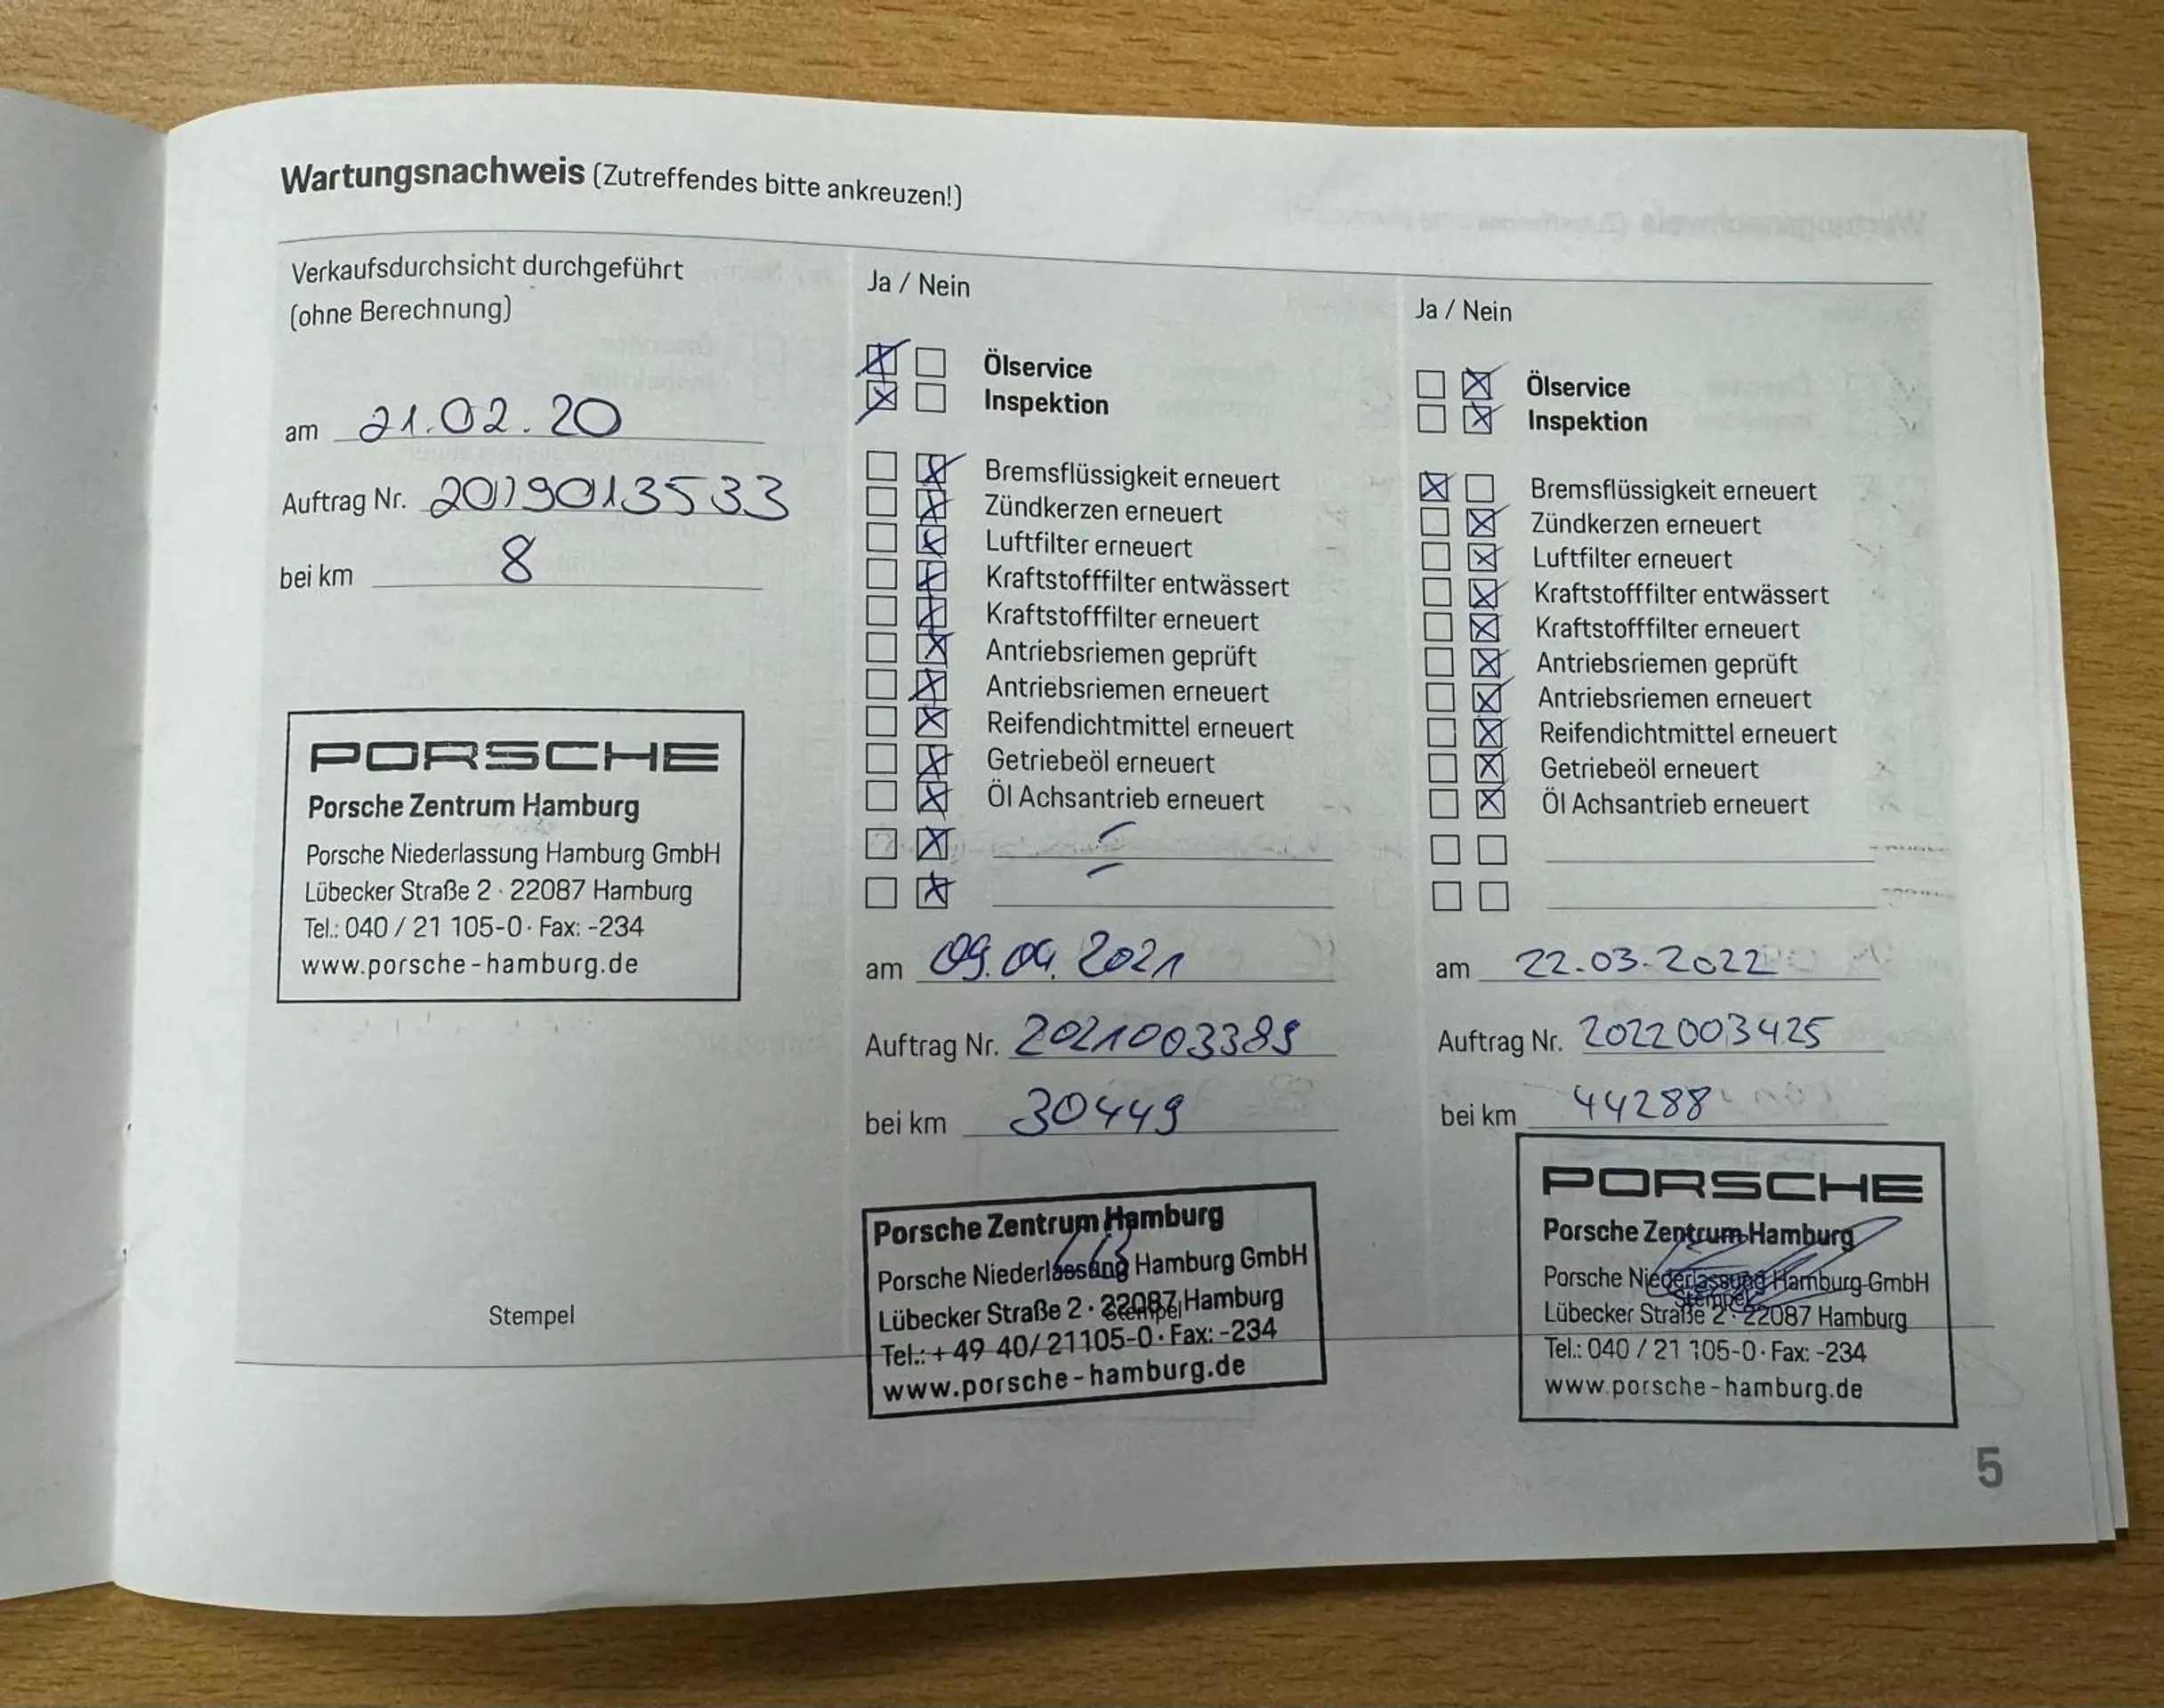 Wartungsnachweis (Zutreffendes bitte ankreuzen!)
Verkaufsdurchsicht durchgeführt
(ohne Berechnung)
am 21.02.20
Auftrag Nr. 2019013533
bei km 8
PORSCHE
Porsche Zentrum Hamburg
Porsche Niederlassung Hamburg GmbH
Lübecker Straße 2 · 22087 Hamburg
Tel.: 040 / 21 105-0 · Fax: -234
www.porsche-hamburg.de
Stempel
Ja / Nein
Ölservice
Inspektion
Bremsflüssigkeit erneuert
Zündkerzen erneuert
Luftfilter erneuert
Kraftstofffilter entwässert
Kraftstofffilter erneuert
Antriebsriemen geprüft
Antriebsriemen erneuert
Reifendichtmittel erneuert
Getriebeöl erneuert
Öl Achsantrieb erneuert
am 09.04.2021
Auftrag Nr. 2021003389
bei km 30449
Porsche Zentrum Hamburg
Porsche Niederlassung Hamburg GmbH
Lübecker Straße 2 · 22087 Hamburg
Stempel
Tel.: +49 40/21105-0 · Fax: -234
www.porsche-hamburg.de
Ja / Nein
Ölservice
Inspektion
Bremsflüssigkeit erneuert
Zündkerzen erneuert
Luftfilter erneuert
Kraftstofffilter entwässert
Kraftstofffilter erneuert
Antriebsriemen geprüft
Antriebsriemen erneuert
Reifendichtmittel erneuert
Getriebeöl erneuert
Öl Achsantrieb erneuert
am 22.03.2022
Auftrag Nr. 2022003425
bei km 44288
PORSCHE
Porsche Zentrum Hamburg
Porsche Niederlassung Hamburg GmbH
Stempel
Lübecker Straße 2 · 22087 Hamburg
Tel.: 040 / 21 105-0 · Fax: -234
www.porsche-hamburg.de
5